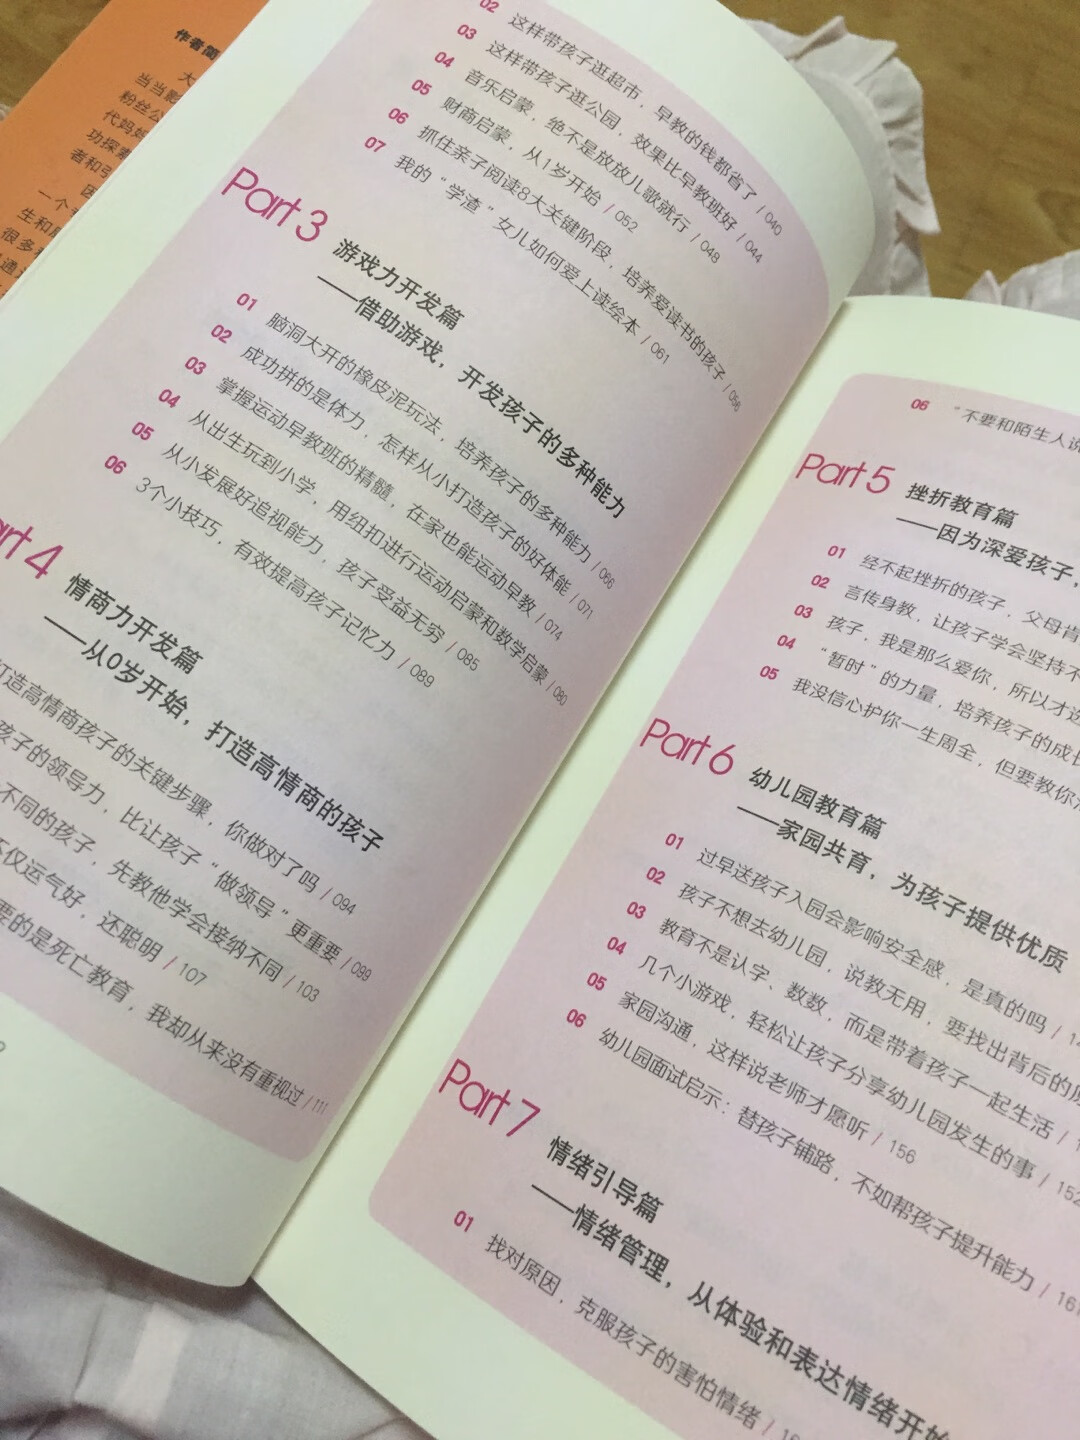 作者简
大
当当影
粉丝公
代妈妈
功探索
者和引
因
一个
生和
很多
通
02 这样带孩子逛超市，早教的钱都省了 / 040
03 这样带孩子逛公园，效果比早教班好 / 044
04 音乐启蒙，绝不是放放儿歌就行 / 048
05 财商启蒙，从1岁开始 / 052
06 抓住亲子阅读8大关键阶段，培养爱读书的孩子 / 056
07 我的“学渣”女儿如何爱上读绘本 / 061
Part 3 游戏力开发篇
——借助游戏，开发孩子的多种能力
01 脑洞大开的橡皮泥玩法，培养孩子的多种能力 / 066
02 成功拼的是体力，怎样从小打造孩子的好体能 / 071
03 掌握运动早教班的精髓，在家也能运动早教 / 074
04 从出生玩到小学，用纽扣进行运动启蒙和数学启蒙 / 080
05 从小发展好追视能力，孩子受益无穷 / 085
06 3个小技巧，有效提高孩子记忆力 / 089
art 4 情商力开发篇
——从0岁开始，打造高情商的孩子
打造高情商孩子的关键步骤，你做对了吗 / 094
孩子的领导力，比让孩子“做领导”更重要 / 099
不同的孩子，先教他学会接纳不同 / 103
不仅运气好，还聪明 / 107
要的是死亡教育，我却从来没有重视过 / 111
06 “不要和陌生人说
Part 5 挫折教育篇
——因为深爱孩子，
01 经不起挫折的孩子，父母肯
02 言传身教，让孩子学会坚持不
03 孩子，我是那么爱你，所以才
04 “暂时”的力量，培养孩子的成长
05 我没信心护你一生周全，但要教你
Part 6 幼儿园教育篇
——家园共育，为孩子提供优质
01 过早送孩子入园会影响安全感，是真的吗 / 1
02 孩子不想去幼儿园，说教无用，要找出背后的
03 教育不是认字、数数，而是带着孩子一起生活 / 1
04 几个小游戏，轻松让孩子分享幼儿园发生的事 / 152
05 家园沟通，这样说老师才愿听 / 156
06 幼儿园面试启示：替孩子铺路，不如帮孩子提升能力 / 161
Part 7 情绪引导篇
——情绪管理，从体验和表达情绪开始
01 找对原因，克服孩子的害怕情绪 / 16